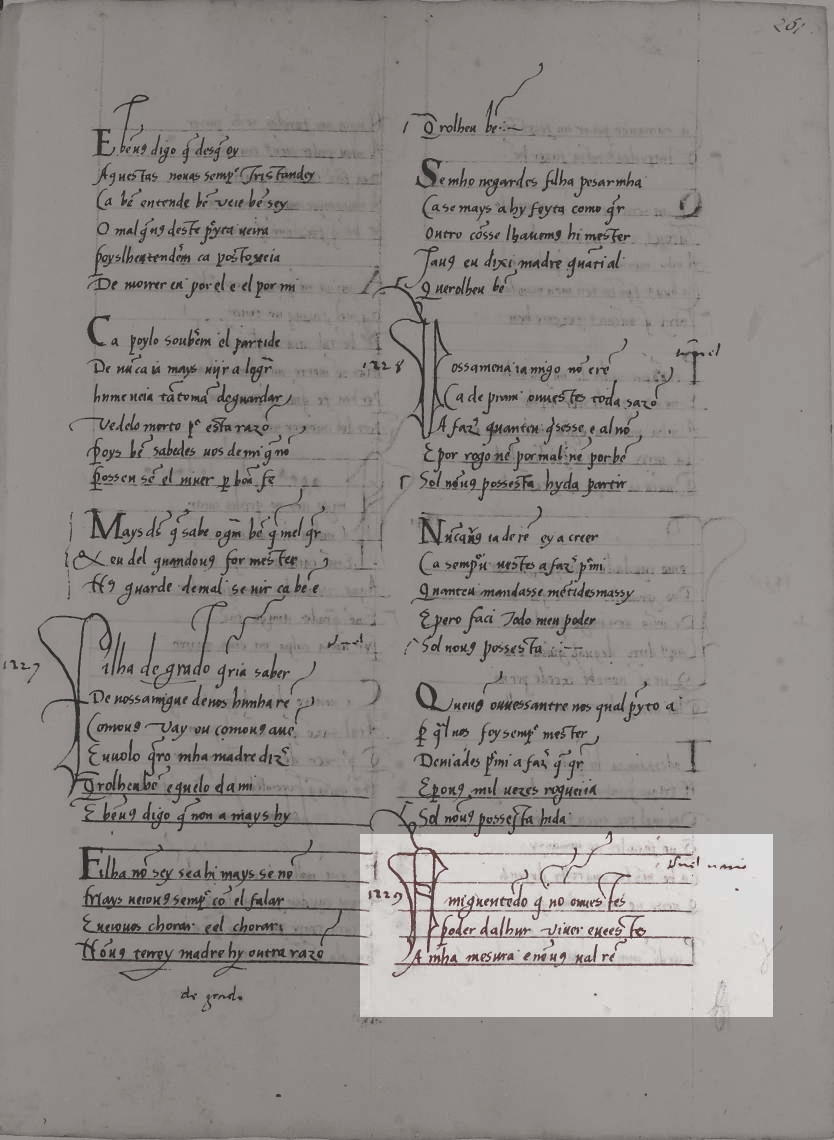 261
E bẽ uꝯ digo q̃ desq̃ oy
Aquestas nouas semp̃ Tristandey
Ca bẽ entende bẽ ueie bẽ sey
O mal q̃ uꝯ deste p̃yto ueira
De morrer eu por el e el por mi
Ca poylo soubẽm el partide
De nũca ia mays uijr a logr̃
hume ueia tã toma de guardar
Vedelo morto p̃ esta razõ
poys bẽ sabedes uos de mi q̃ nõ
possen sẽ el uiuer p bõa fe
Mays ds̃ q̃ sabe o gm̃ bẽ q̃ mel q̃r
& eu del quandouꝯ for mester
Nꝯ guarde de mal se uir ca be e
1227
Filha de grado q̃ria saber
De uossamigue de uos hunha rẽ
Comouꝯ Vay ou comouꝯ auẽ
Eu uolo q̃ro mha madre diz̃
Q̃rolheu bẽ e quelo da mi
E bẽ uꝯ digo q̃ non a mays hy
Filha nõ sey se a hi mays se nõ
Mays ueiouꝯ semp̃ cõ el falar
E ueiouos chorar e el chorar
Nõ uꝯ terrey madre hy outra razõ
de grado
Q̃rolheu bẽ
Se mho negardes filha pesarmha
Ca se mays a hy feyto como q̃r
Outro cõsselhauemꝯ hi mester
Ia uꝯ eu dixi madre quãti a l
Querolheu bẽ
1228
Vossa mena ia migo nõ ere
Ca de pram ouuestes toda sazõ
A faz̃ quanteu q̃sesse e al nõ
E por rogo nẽ por mal nẽ por bẽ
Sol nõuꝯ possesta hyda partir
Nũca uꝯ ia de rẽ ey a creer
Ca semp̃u uestes a faz̃ p̃mi
Quanteu mandasse mẽtides massy
E pero faci Todo meu poder
Sol nouꝯ possesta
Que uꝯ ouuessantre nos qual p̃yto a
p q̃l uos foy semp̃ mester
Deuiades p̃mi a faz̃ q̃ q̃r
E p̃ ouꝯ mil uezes rogueiia
Sol nõuꝯ possesta hida
1229
Amiguentẽdo q̃ nõ ouuestes
poder dalhur viuer e ueestes
A mha mesura e nõ uꝯ ual rẽ